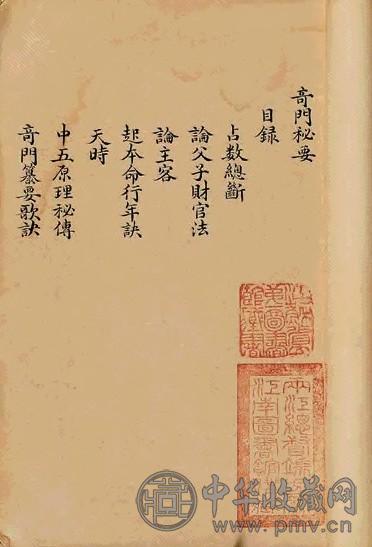 奇門秘要
目录
占数總斷
論父子財官法
論主客
起本命行年訣
天時
中五原理秘傳
奇門纂要歌訣
中华收藏网
www.pmv.cn